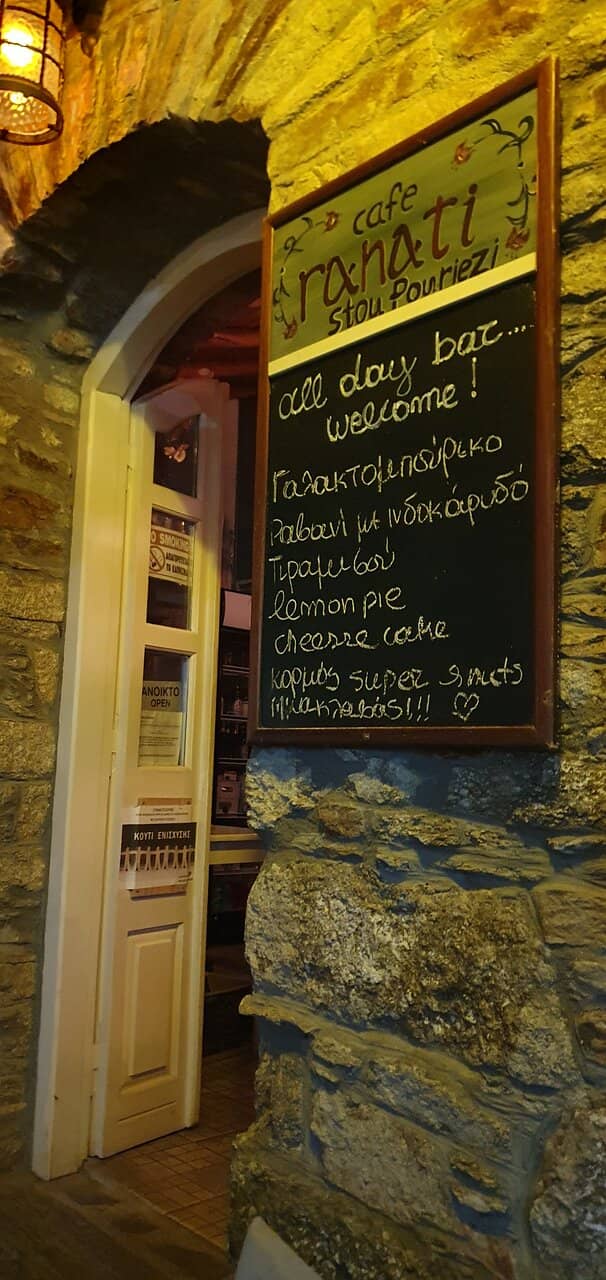 cafe
ranati
stou Pouriezi
all day bar...
welcome!
Γαλακτομπούρικο
Ραβανί με ινδοκάρυδό
Τιραμισού
lemon pie
cheese cake
κορμός super 9 nuts
Μπακλαβάς!!! ♡
NO SMOKING
ΑΠΑΓΟΡΕΥΕΤΑΙ
ΤΟ ΚΑΠΝΙΣΜΑ
ΑΝΟΙΚΤΟ
OPEN
ΚΟΥΤΙ ΕΝΙΣΧΥΣΗΣ